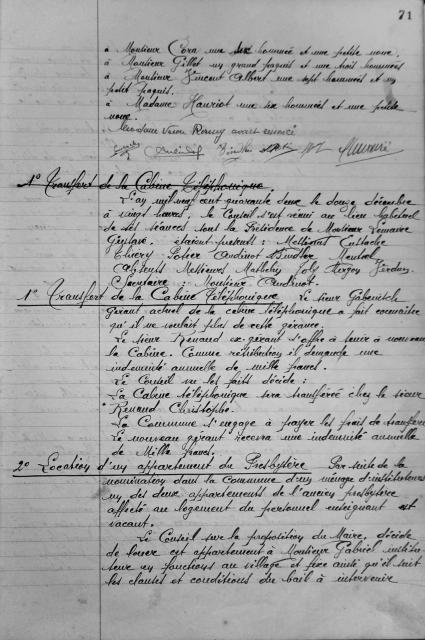 71
à Monsieur Cora une six hommée et une petite noue.
à Monsieur Gillet un grand paquis et une trois hommées
à Monsieur Vincent Albert une sept hommées et un
petit paquis.
à Madame Hauriot une six hommées et une petite
noue.
Madame Veuve Remy ayant renoncé
1° Transfert de la Cabine Téléphonique.
L'an mil neuf cent quarante deux le douze décembre
à vingt heures, le Conseil s'est réuni au lieu habituel
de ses séances sous la Présidence de Monsieur Lemaire
Gustave. étaient présents : Messieurs Eustache
Thiery Potier Oudinot Mentrel
Absents Messieurs Mathieu Joly
Secrétaire : Monsieur Oudinot.
1° Transfert de la Cabine Téléphonique Le sieur
Gérant actuel de la cabine téléphonique a fait connaître
qu'il ne voulait plus de cette gérance.
Le sieur Renaud ex-gérant s'offre à tenir à nouveau
la Cabine. Comme rétribution il demande une
indemnité annuelle de mille francs.
Le Conseil vu les faits décide :
La Cabine téléphonique sera transférée chez le sieur
Renaud Christophe.
La Commune s'engage à payer les frais de transfert
Le nouveau gérant recevra une indemnité annuelle
de Mille francs.
2° Location d'un appartement du Presbytère Par suite de la
nomination dans la Commune d'un ménage d'instituteurs
un des deux appartements de l'ancien presbytère
affecté au logement du personnel enseignant est
vacant.
Le Conseil sur la proposition du Maire, décide
de louer cet appartement à Monsieur Gabriel institu-
teur en fonctions au village et fixe ainsi qu'il suit
les clauses et conditions du bail à intervenir